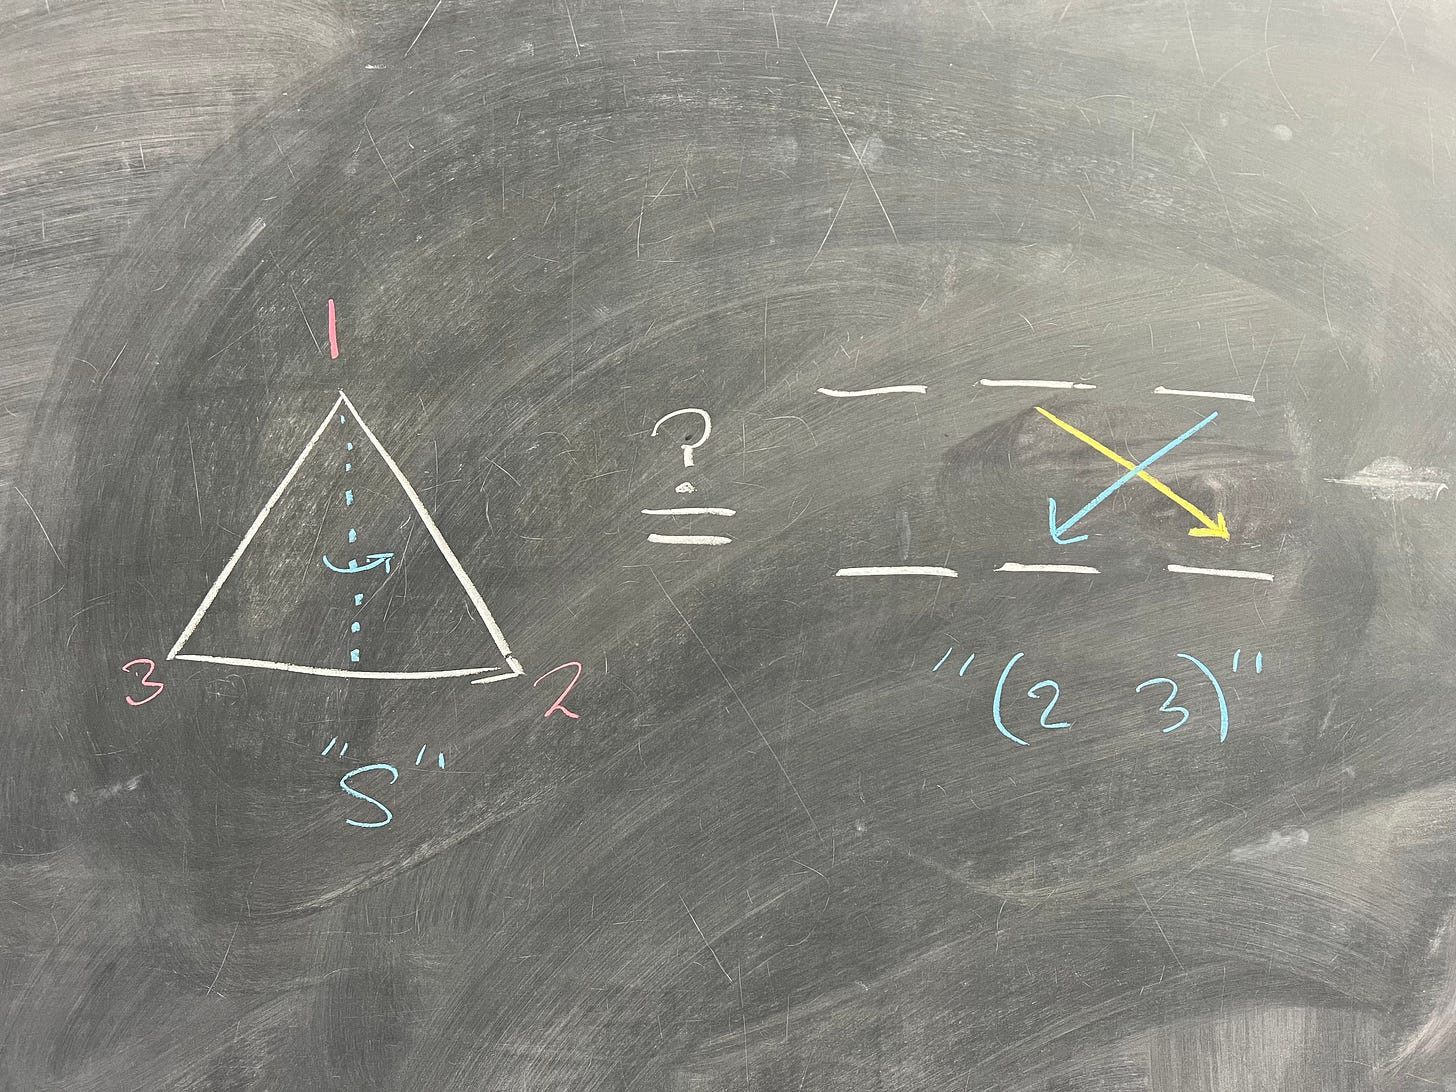 1
3
2
"S"
?
=
"(2 3)"